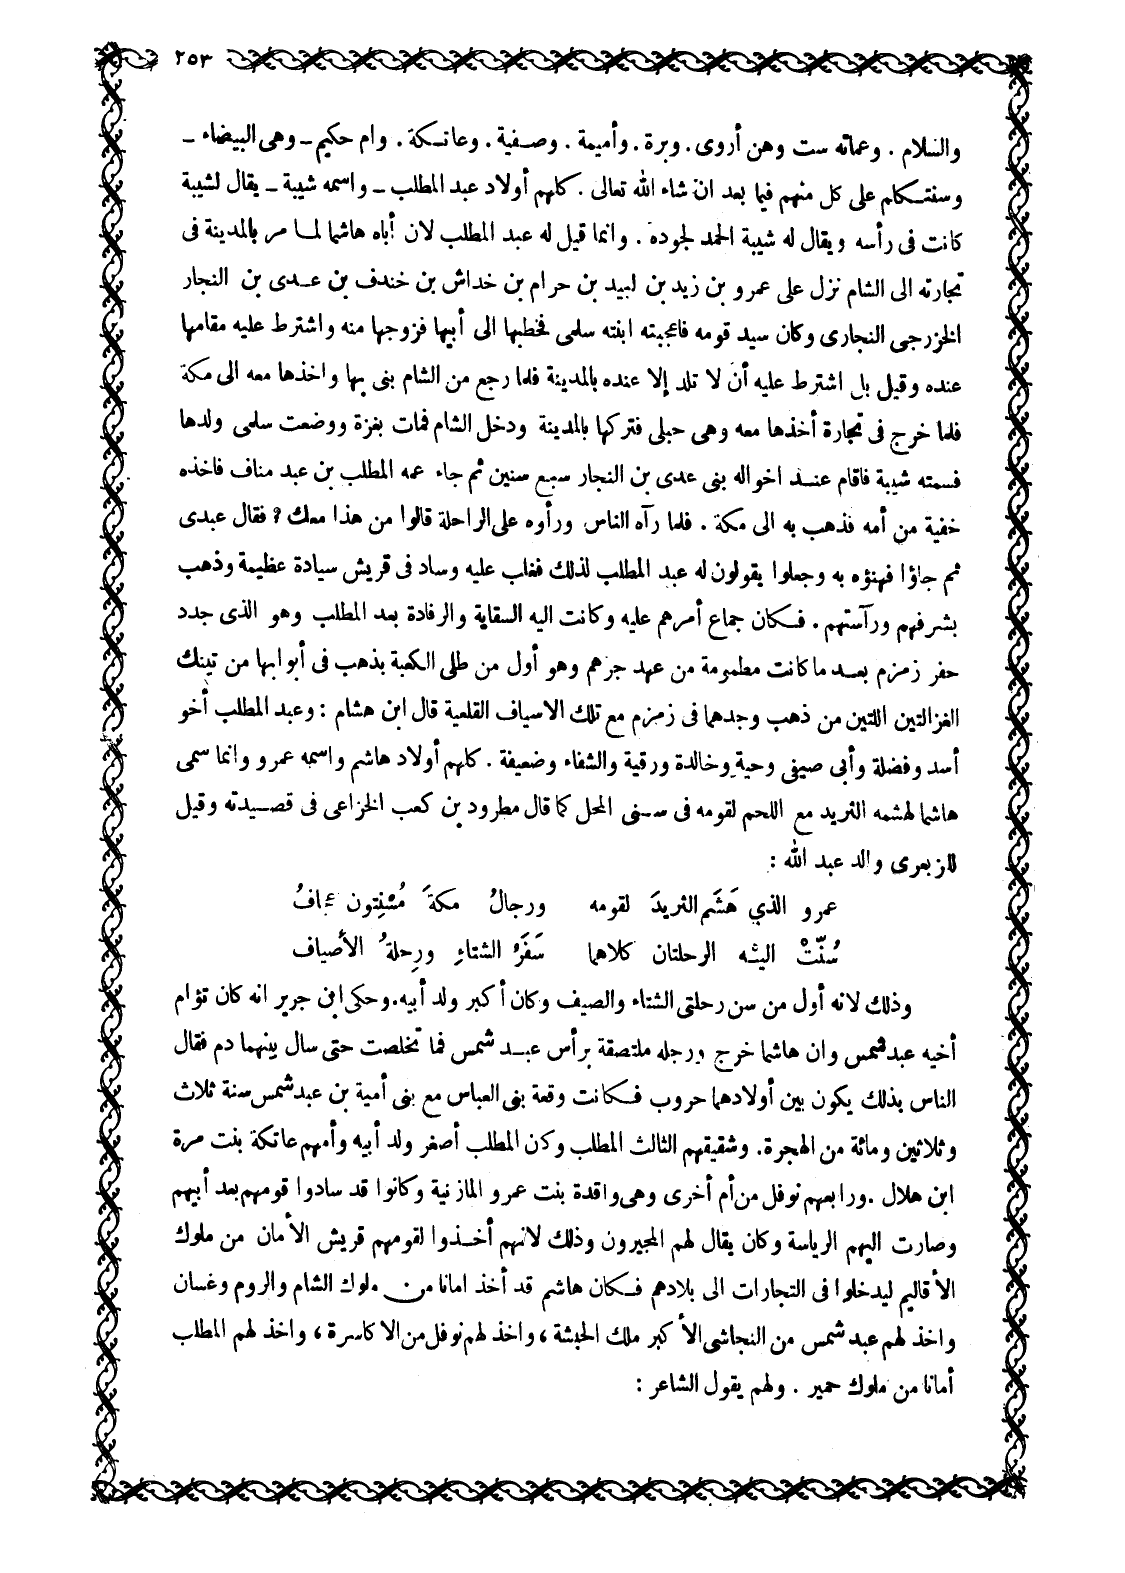 ٢٥٣
والسلام . وعماته ست وهن أروى . وبرة . وأميمة . وصفية . وعاتكة . وام حكيم ــ وهى البيضاء ــ
وسنتكلم على كل منهم فيما بعد ان شاء الله تعالى . كلهم أولاد عبد المطلب ــ واسمه شيبة ــ يقال لشيبة
كانت فى رأسه ويقال له شيبة الحمد لجوده . وانما قيل له عبد المطلب لان أباه هاشما لما مر بالمدينة فى
تجارته الى الشام نزل على عمرو بن زيد بن لبيد بن حرام بن خداش بن خندف بن عدى بن النجار
الخزرجى النجارى وكان سيد قومه فاعجبته ابنته سلمى فخطبها الى أبيها فزوجها منه واشترط عليه مقامها
عنده وقيل بل اشترط عليه أن لا تلد إلا عنده بالمدينة فلما رجع من الشام بنى بها واخذها معه الى مكة
فلما خرج فى تجارة أخذها معه وهى حبلى فتركها بالمدينة ودخل الشام فمات بغزة ووضعت سلمى ولدها
فسمته شيبة فاقام عند اخواله بنى عدى بن النجار سبع سنين ثم جاء عمه المطلب بن عبد مناف فاخذه
خفية من أمه فذهب به الى مكة . فلما رآه الناس ورأوه على الراحلة قالوا من هذا معك ؟ فقال عبدى
ثم جاؤا فهنؤه به وجعلوا يقولون له عبد المطلب لذلك فغلب عليه وساد فى قريش سيادة عظيمة وذهب
بشرفهم ورآستهم . فكان جماع أمرهم عليه وكانت اليه السقاية والرفادة بعد المطلب وهو الذى جدد
حفر زمزم بعد ما كانت مطمومة من عهد جرهم وهو أول من طلى الكعبة بذهب فى أبوابها من تينك
الغزالتين اللتين من ذهب وجدهما فى زمزم مع تلك الاسياف القلعية قال ابن هشام : وعبد المطلب أخو
أسد وفضلة وأبى صيفى وحية وخالدة ورقية والشفاء وضعيفة . كلهم أولاد هاشم واسمه عمرو وانما سمى
هاشما لهشمه الثريد مع اللحم لقومه فى سنى المحل كما قال مطرود بن كعب الخزاعى فى قصيدته وقيل
للزبعرى والد عبد الله :
عمرو الذي هَشَم الثريدَ لقومه ورجالُ مكةَ مُسْنِتون عجافُ
سُنّتْ اليه الرحلتان كلاهما سَفَرُ الشتاءِ ورِحلةُ الأصياف
وذلك لانه أول من سن رحلتى الشتاء والصيف وكان أكبر ولد أبيه. وحكى ابن جرير انه كان تؤام
أخيه عبد شمس وان هاشما خرج ورجله ملتصقة برأس عبد شمس فما تخلصت حتى سال بينهما دم فقال
الناس بذلك يكون بين أولادهما حروب فكانت وقعة بنى العباس مع بنى أمية بن عبد شمس سنة ثلاث
وثلاثين ومائة من الهجرة. وشقيقهم الثالث المطلب وكن المطلب أصغر ولد أبيه وأمهم عاتكة بنت مرة
ابن هلال . ورابعهم نوفل من أم أخرى وهى واقدة بنت عمرو المازنية وكانوا قد سادوا قومهم بعد أبيهم
وصارت اليهم الرياسة وكان يقال لهم المجيرون وذلك لانهم أخذوا لقومهم قريش الأمان من ملوك
الأقاليم ليدخلوا فى التجارات الى بلادهم فكان هاشم قد أخذ امانا من ملوك الشام والروم وغسان
واخذ لهم عبد شمس من النجاشى الأكبر ملك الحبشة ، واخذ لهم نوفل من الاكاسرة ، واخذ لهم المطلب
أمانا من ملوك حمير . ولهم يقول الشاعر :